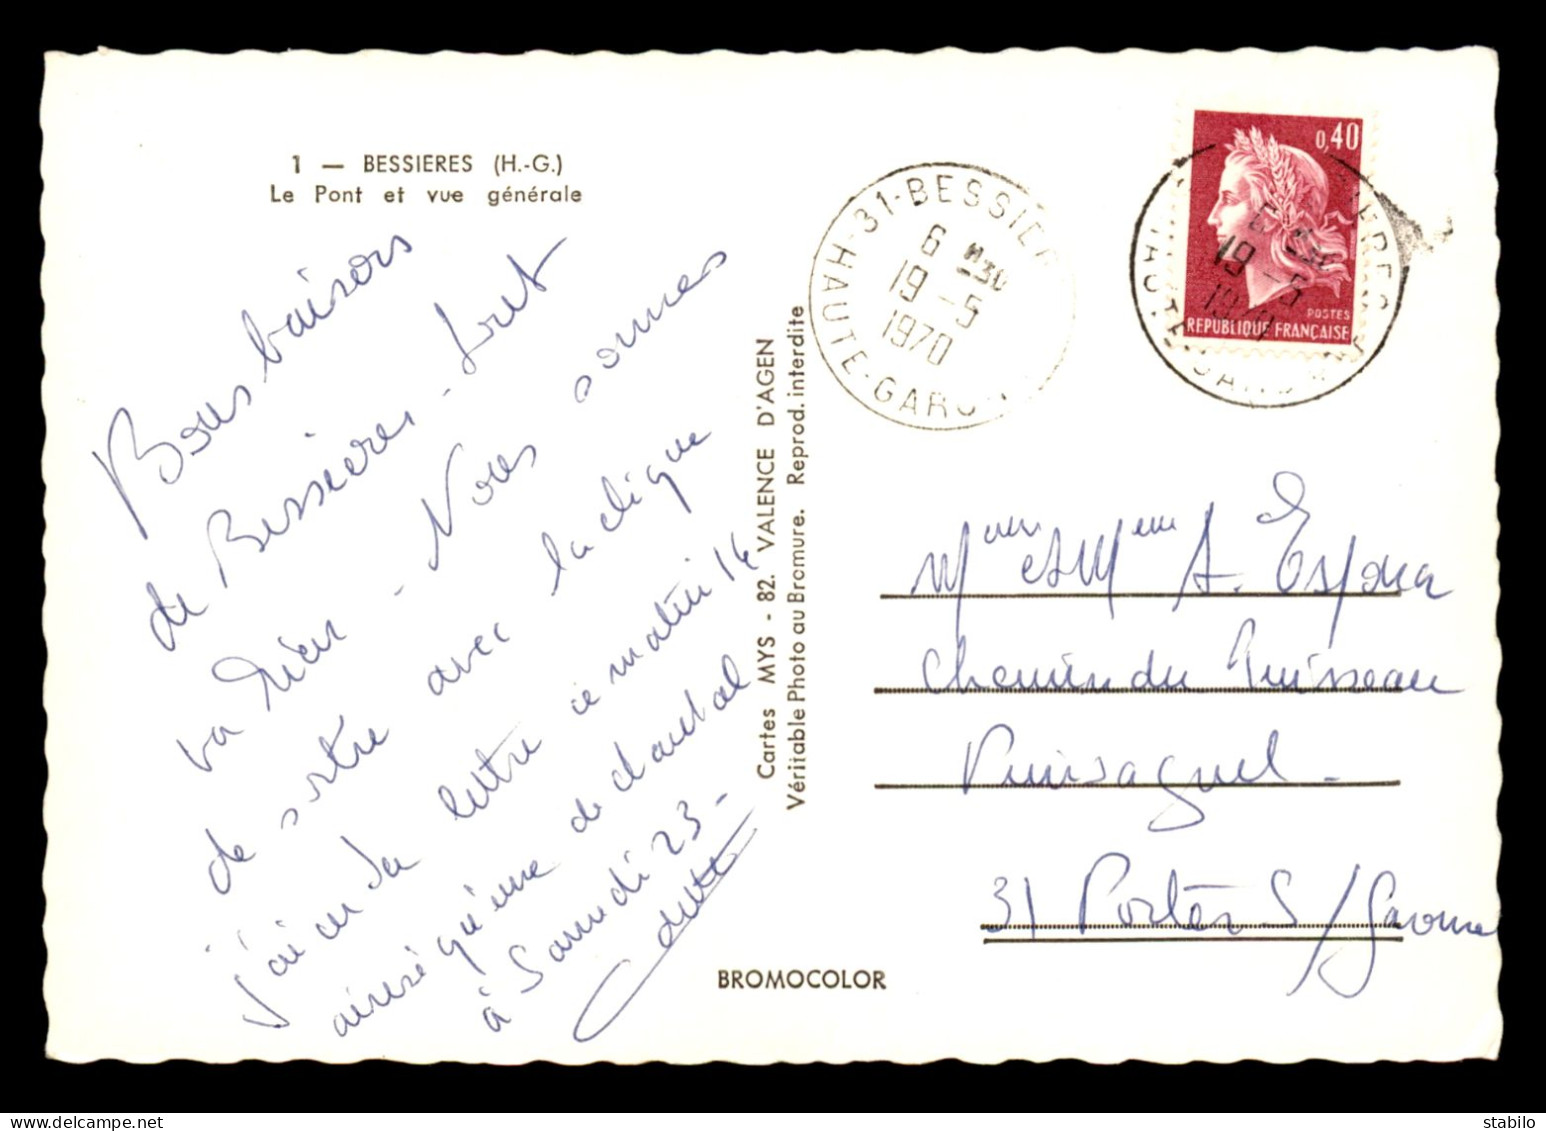 1 — BESSIERES (H.-G.)
Le Pont et vue générale
Bons baisers
de Bessières - tout
va bien - Nous sommes
de sortie avec la clique
j'ai eu ta lettre ce matin 14
ainsi qu'une de chantal
à Samedi 23 -
Cartes MYS - 82. VALENCE D'AGEN
Véritable Photo au Bromure. Reprod. interdite
BROMOCOLOR
31-BESSIER
HAUTE-GARO
6 H30
19 -5
1970
0,40
POSTES
REPUBLIQUE FRANÇAISE
19 -5
1970
et Mme A. Espona
Chemin du Ruisseau
Pinsaguel -
31 Portet S/Garonne